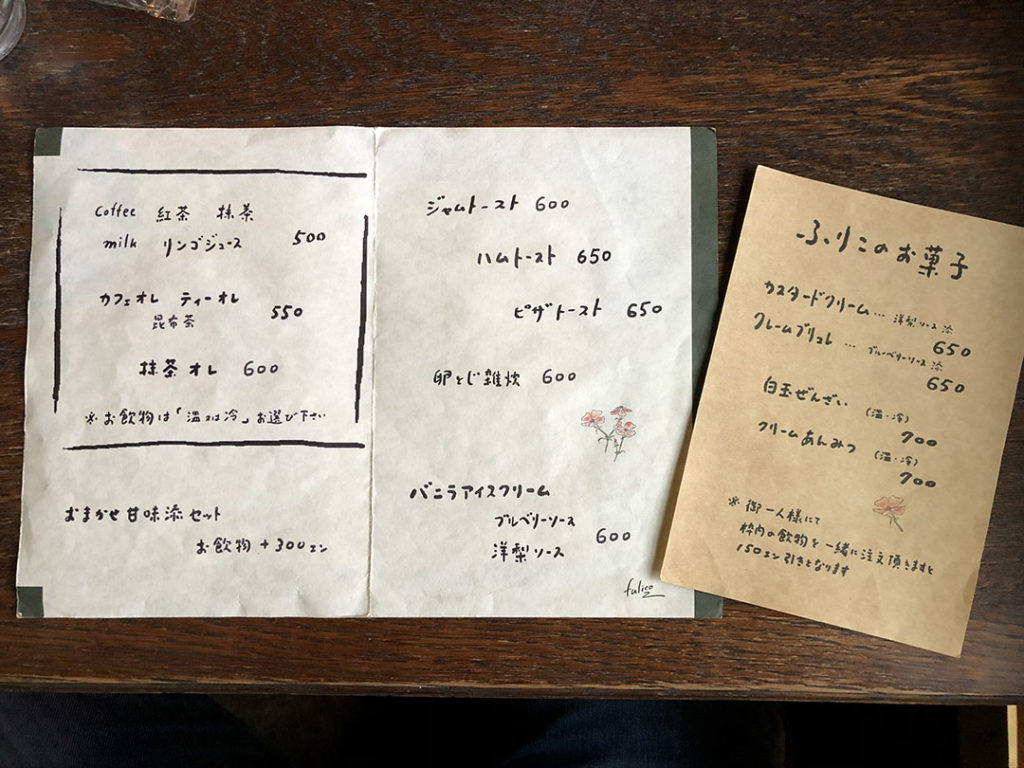 coffee 紅茶 抹茶
milk リンゴジュース 500
カフェオレ ティーオレ
昆布茶 550
抹茶オレ 600
※お飲物は「温又は冷」お選び下さい
おまかせ甘味添セット
お飲物+300エン
ジャムトースト 600
ハムトースト 650
ピザトースト 650
卵とじ雑炊 600
バニラアイスクリーム
ブルベリーソース
洋梨ソース 600
fulico
ふりこのお菓子
カスタードクリーム… 洋梨ソース添
650
クレームブリュレ … ブルーベリーソース添
650
白玉ぜんざい (温・冷)
700
クリームあんみつ (温・冷)
700
※御一人様にて
枠内の飲物を一緒に注文頂きますと
150エン引きとなります